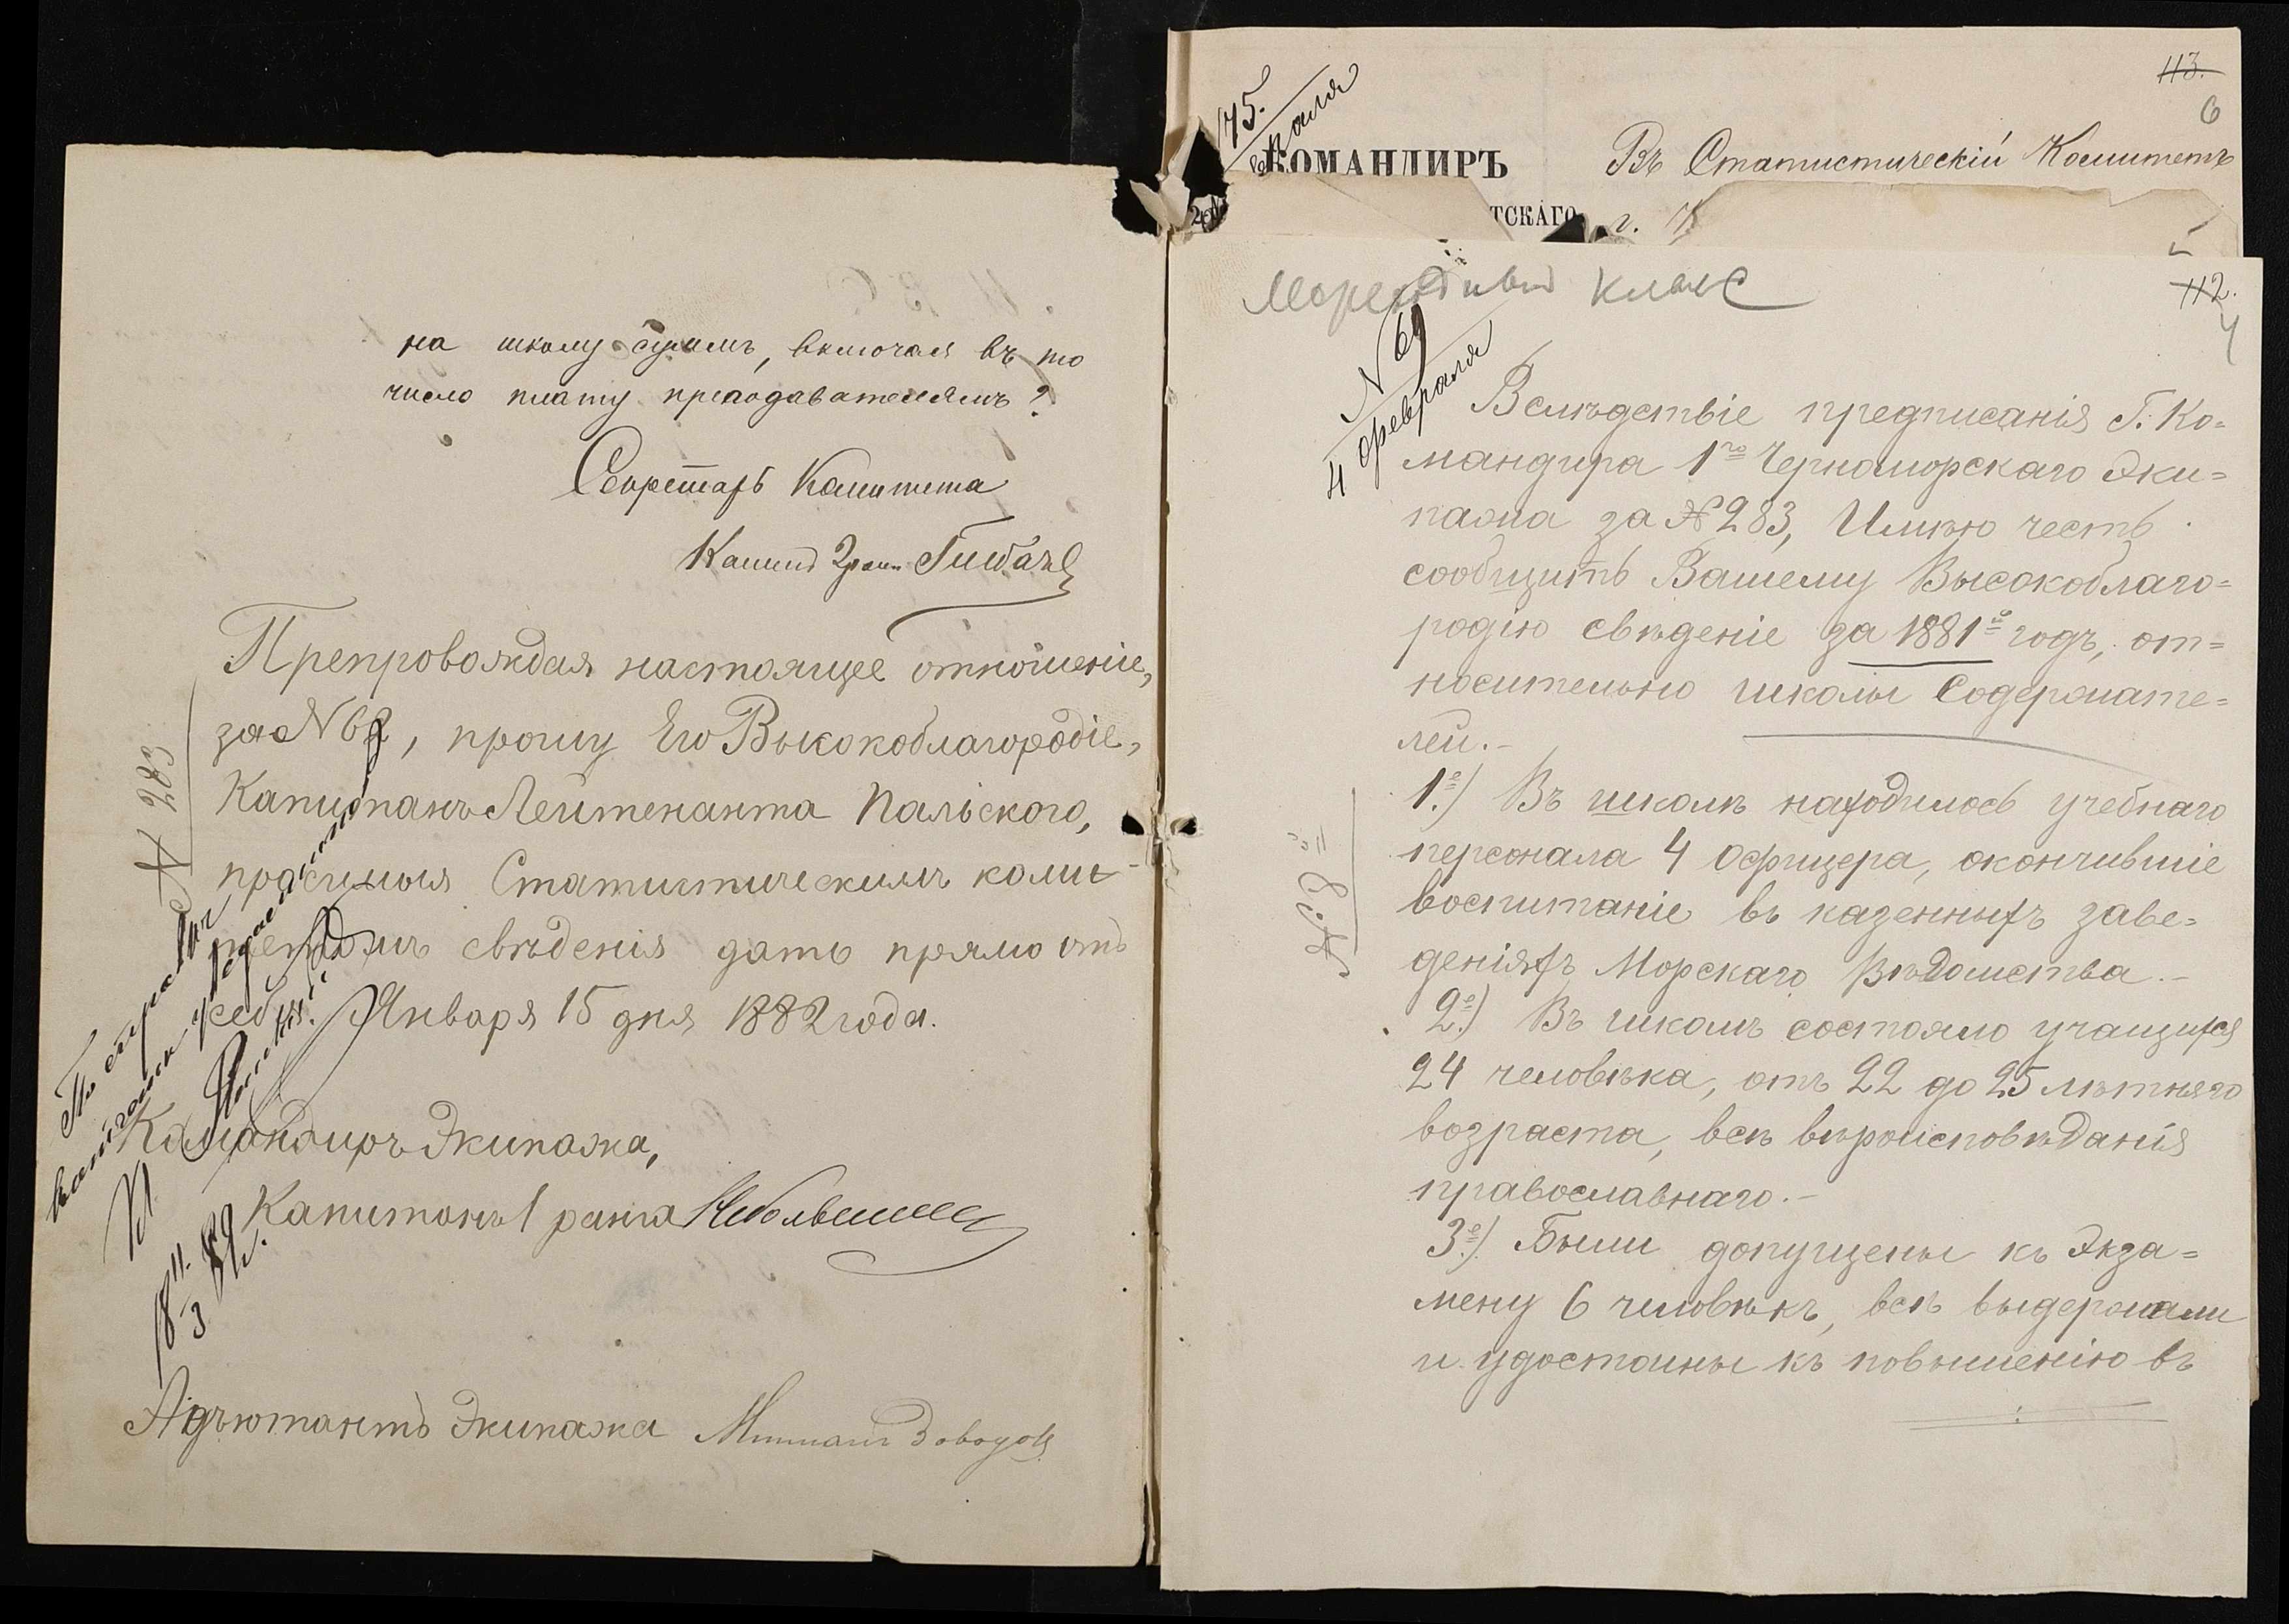 на школу суммъ, включая въ то
число плату преподавателямъ?
Секретарь Комитета
Препровождая настоящее отношеніе,
за №62, прошу Его Высокоблагородіе,
Капитанъ Лейтенанта Пальского,
просимыя Статистическимъ коми-
тетомъ свѣденія дать прямо отъ
себя. Января 15 дня 1882 года.
Командиръ Экипажа,
Капитанъ 1 ранга
Адъютантъ Экипажа Мичманъ
№ 283
113.
6
175.
КОМАНДИРЪ
Въ Статистическій Комитетъ
ТСКАГО
г.
5
классъ
112.
4
№ 69
4 февраля
Вслѣдствіе предписанія Г. Ко=
мандира 1го Черноморскаго Эки=
пажа за №283, Имѣю честь
сообщить Вашему Высокоблаго=
родію свѣденіе за 1881й годъ, от=
носительно школы Содержате=
лей.-
1е.) Въ школѣ находилось учебнаго
персонала 4 Офицера, окончившіе
воспитаніе въ казенныхъ заве=
деніяхъ Морскаго Вѣдомства.-
2е.) Въ школѣ состояло учащихся
24 человѣка, отъ 22 до 25 лѣтняго
возраста, всѣ вѣроисповѣданія
православнаго.-
3е.) Были допущены къ Экза=
мену 6 человѣкъ, всѣ выдержали
и удостоины къ повышенію въ